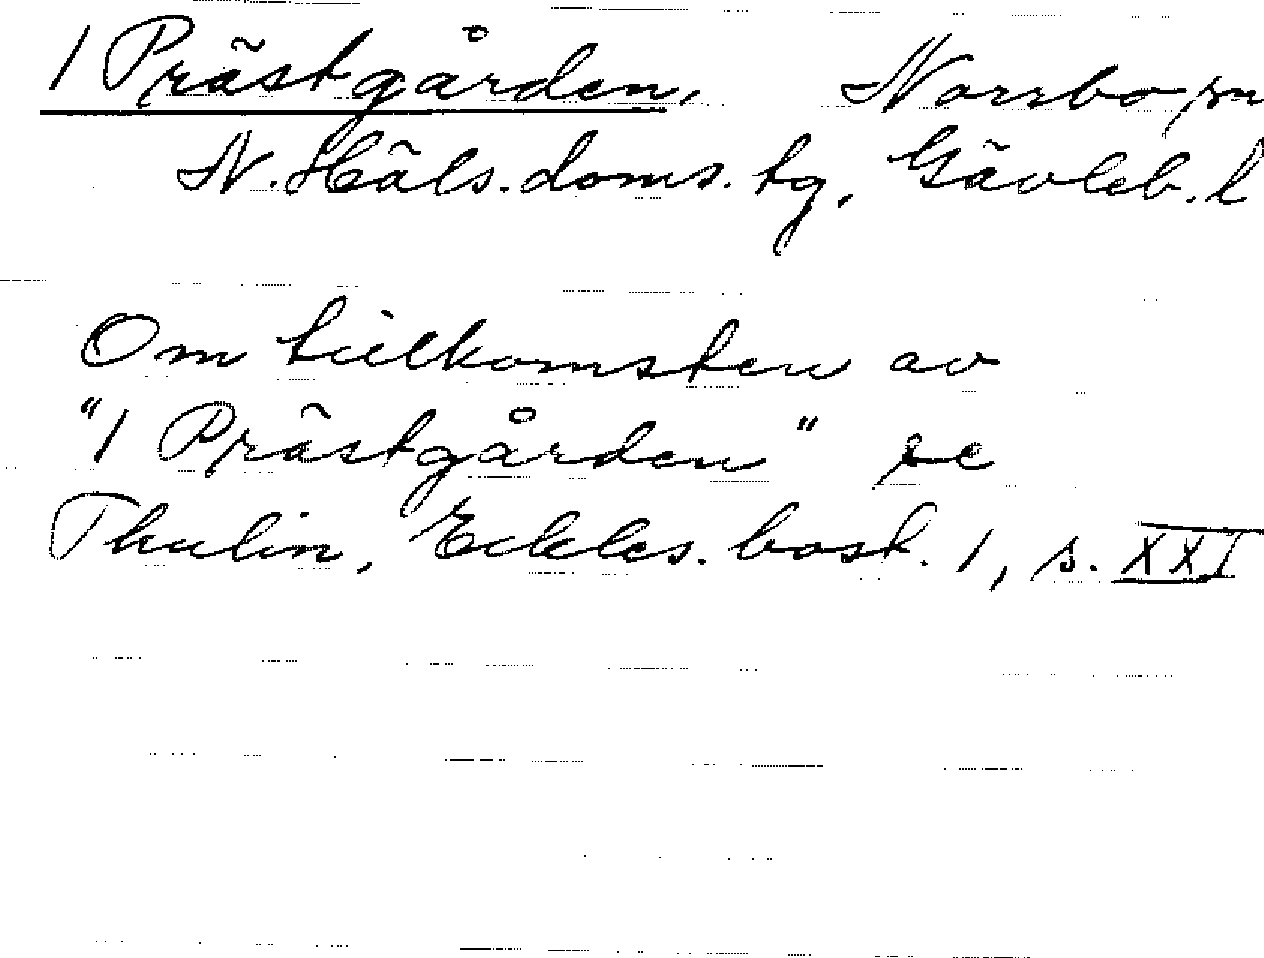 1 Prästgården, Norrbo sn
N. Häls. doms. tg, Gävleb. l
Om tillkomsten av
"1 Prästgården" se
Thulin, Eckles. bost. 1, s. XXI